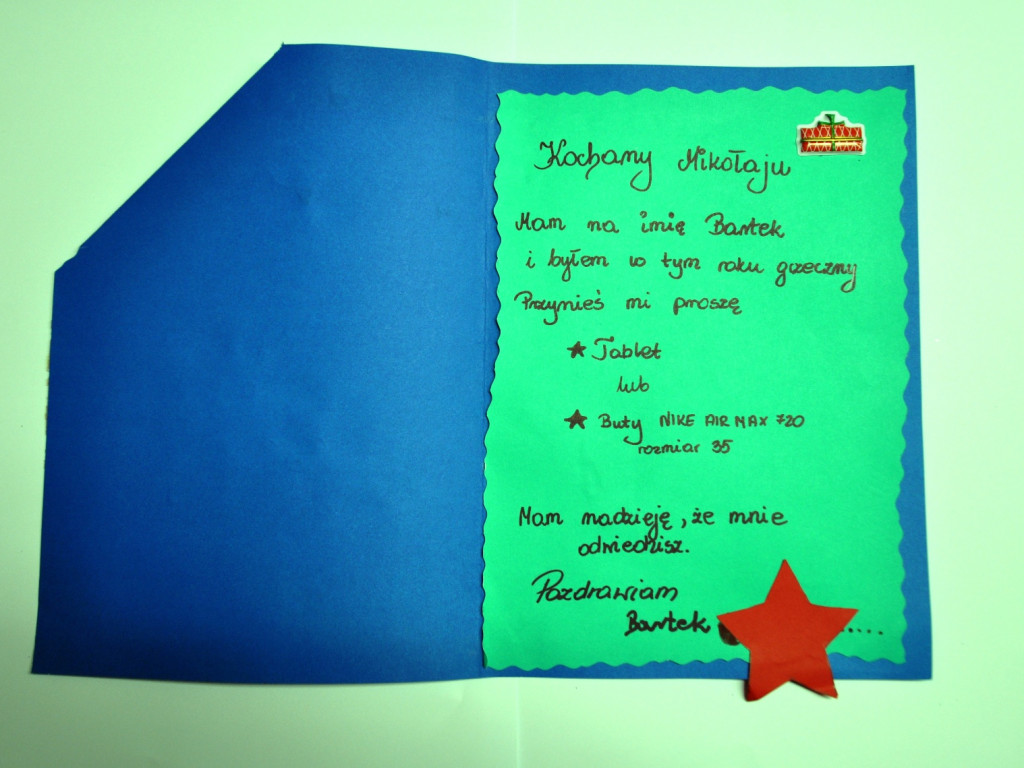 Kochany Mikołaju
Mam na imię Bartek
i byłem w tym roku grzeczny
Przynieś mi proszę
★ Tablet
lub
★ Buty NIKE AIR MAX 720
rozmiar 35
Mam nadzieję, że mnie
odwiedzisz.
Pozdrawiam
Bartek .....